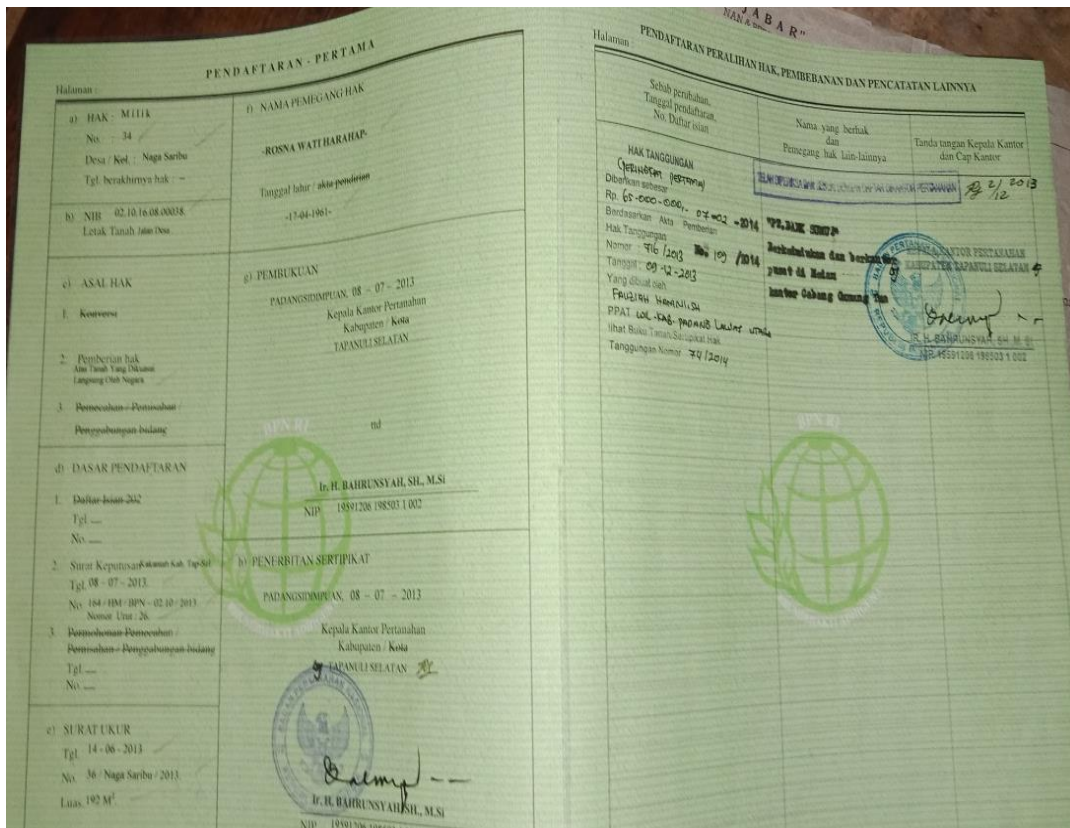 JABAR"
PENDAFTARAN - PERTAMA
Halaman :
a) HAK : Milik
No. : 34
Desa / Kel. : Naga Saribu
Tgl. berakhirnya hak : -
b) NIB 02.10.16.08.00038.
Letak Tanah Jalan Desa
c) ASAL HAK
1. Konversi
2. Pemberian hak
Atas Tanah Yang Dikuasai
Langsung Oleh Negara
3. Pemecahan / Pemisahan /
Penggabungan bidang
d) DASAR PENDAFTARAN
1. Daftar Isian 202
Tgl. ---
No. ---
2. Surat Keputusan Kakantah Kab. Tap-Sel
Tgl. 08 - 07 - 2013.
No. 164 / HM / BPN - 02.10 / 2013.
Nomor Urut : 26.
3. Permohonan Pemecahan /
Pemisahan / Penggabungan bidang
Tgl. ---
No. ---
e) SURAT UKUR
Tgl. 14 - 06 - 2013
No. 36 / Naga Saribu / 2013.
Luas. 192 M².
f) NAMA PEMEGANG HAK
-ROSNA WATI HARAHAP-
Tanggal lahir / akta pendirian
-17-04-1961-
g) PEMBUKUAN
PADANGSIDIMPUAN, 08 - 07 - 2013
Kepala Kantor Pertanahan
Kabupaten / Kota
TAPANULI SELATAN
ttd
Ir. H. BAHRUNSYAH, SH., M.Si
NIP. 19591206 198503 1 002
h) PENERBITAN SERTIPIKAT
PADANGSIDIMPUAN, 08 - 07 - 2013
Kepala Kantor Pertanahan
Kabupaten / Kota
TAPANULI SELATAN
Ir. H. BAHRUNSYAH, SH., M.Si
NIP. 19591206
BPN RI
Halaman :
PENDAFTARAN PERALIHAN HAK, PEMBEBANAN DAN PENCATATAN LAINNYA
Sebab perubahan,
Tanggal pendaftaran,
No. Daftar isian
Nama yang berhak
dan
Pemegang hak lain-lainnya
Tanda tangan Kepala Kantor
dan Cap Kantor
2/12 2013
HAK TANGGUNGAN
(PERINGKAT PERTAMA)
Diberikan sebesar
Rp. 65-000-000,- 07-02-2014
Berdasarkan Akta Pemberian
Hak Tanggungan
Nomor : 716/2013 No: 109/2014
Tanggal : 09-12-2013
Yang dibuat oleh
PPAT KAB. PADANG LAWAS UTARA
lihat Buku Tanah/Sertipikat Hak
Tanggungan Nomor 74/2014
"PT. BANK SUMUT"
Berkedudukan dan berkantor
pusat di Medan
kantor Cabang Gunung Tua
KANTOR PERTANAHAN
KABUPATEN TAPANULI SELATAN
IR. H. BAHRUNSYAH, SH, M. SI
NIP. 19591206 198503 1 002
BPN RI